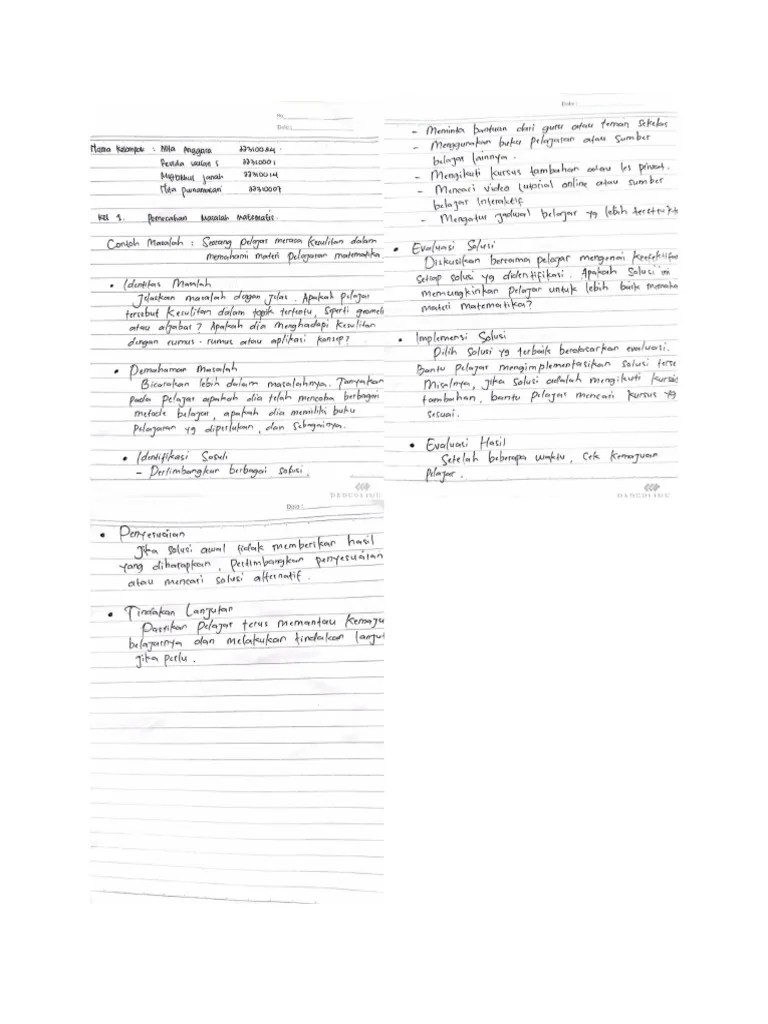 No
Date :
Nama Kelompok : Nita Anggara
Renda wulan S 22310001
Miftakhul Janah 22310014
Mita purnamasari 22310007
Kel 3. Pemecahan Masalah Matematis.
Contoh Masalah : Seorang Pelajar merasa kesulitan dalam
memahami materi pelajaran matematika.
• Identifas Masalah
Jelaskan masalah dengan jelas. Apakah Pelajar
tersebut kesulitan dalam topik tertentu, seperti geometri
atau aljabar? Apakah dia menghadapi kesulitan
dengan rumus-rumus atau aplikasi konsep?
• Pemahaman Masalah
Bicarakan lebih dalam masalahnya. Tanyakan
pada pelajar apakah dia telah mencoba berbagai
metode belajar, apakah dia memiliki buku
pelajaran yg diperlukan, dan sebagainya.
• Identifikasi Sosuli
- Pertimbangkan berbagai solusi.
Date :
- Meminta bantuan dari guru atau teman sekelas
- Menggunakan buku pelajaran atau sumber
belajar lainnya.
- Mengikuti kursus tambahan atau les privat.
- Mencari video tutorial online atau sumber
belajar interaktif
- Mengatur jadwal belajar yg lebih terstruktu
• Evaluasi Solusi
Diskusikan bersama pelajar mengenai keefektifan
setiap solusi yg didentifikasi. Apakah solusi ini
memungkinkan pelajar untuk lebih baik memaha
materi matematika?
• Implemensi Solusi
Pilih solusi yg terbaik berdasarkan evaluasi.
Bantu pelajar mengimplementasikan solusi terse
Misalnya, jika solusi adalah mengikuti kursus
tambahan, bantu pelajar mencari kursus yg
sesuai.
• Evaluasi Hasil
Setelah beberapa waktu, cek kemajuan
pelajar.
Date :
• Penyesuaian
Jika solusi awal tidak memberikan hasil
yang diharapkan, pertimbangkan penyesuaian
atau mencari solusi alternatif.
• Tindakan Lanjutan
Pastikan Pelajar terus memantau kemaju
belajarnya dan melakukan tindakan lanjut
jika perlu.